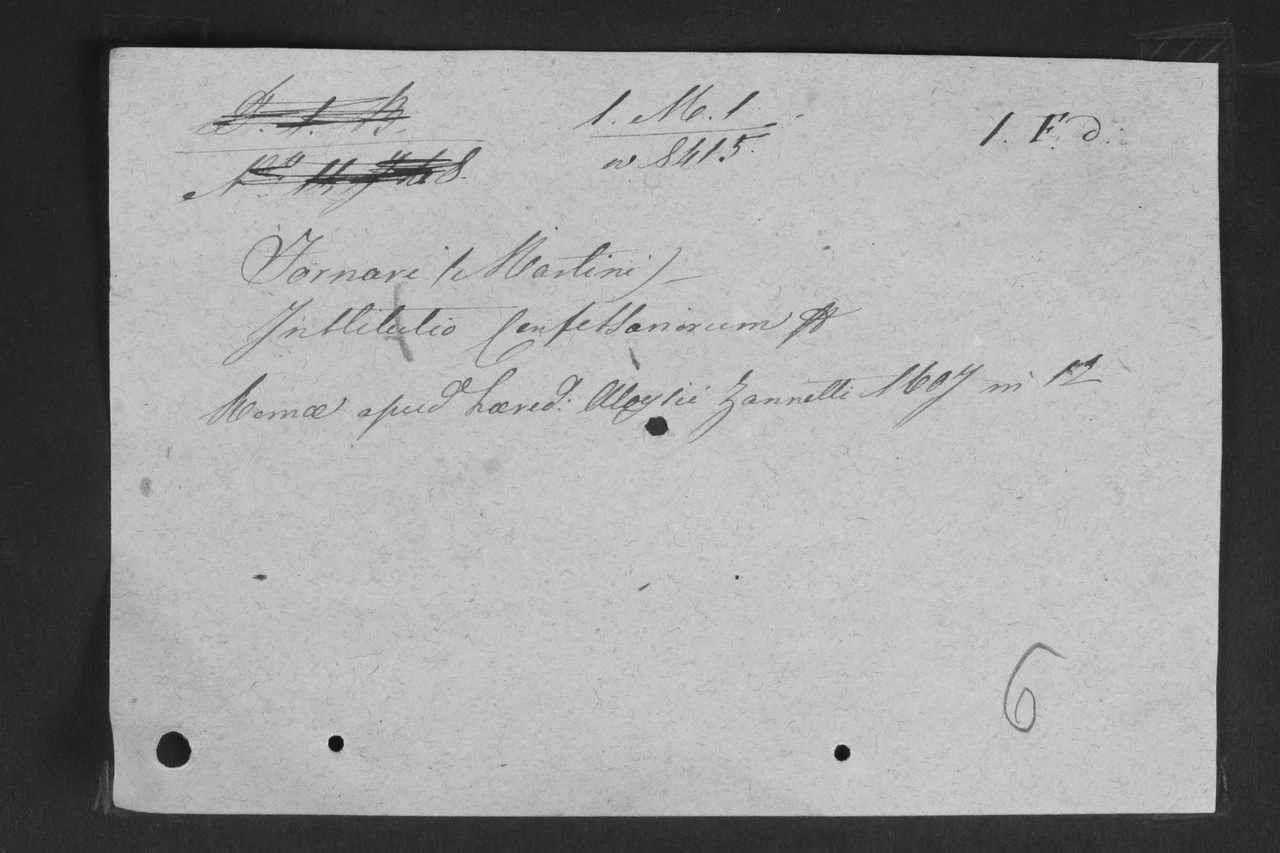 1. M. 1
nº 8415.
1. F. d.
Fornari (Martini)
Institutio Confessariorum
Romæ apud hæred: Aloysii Zannetti 1607 in 12
6